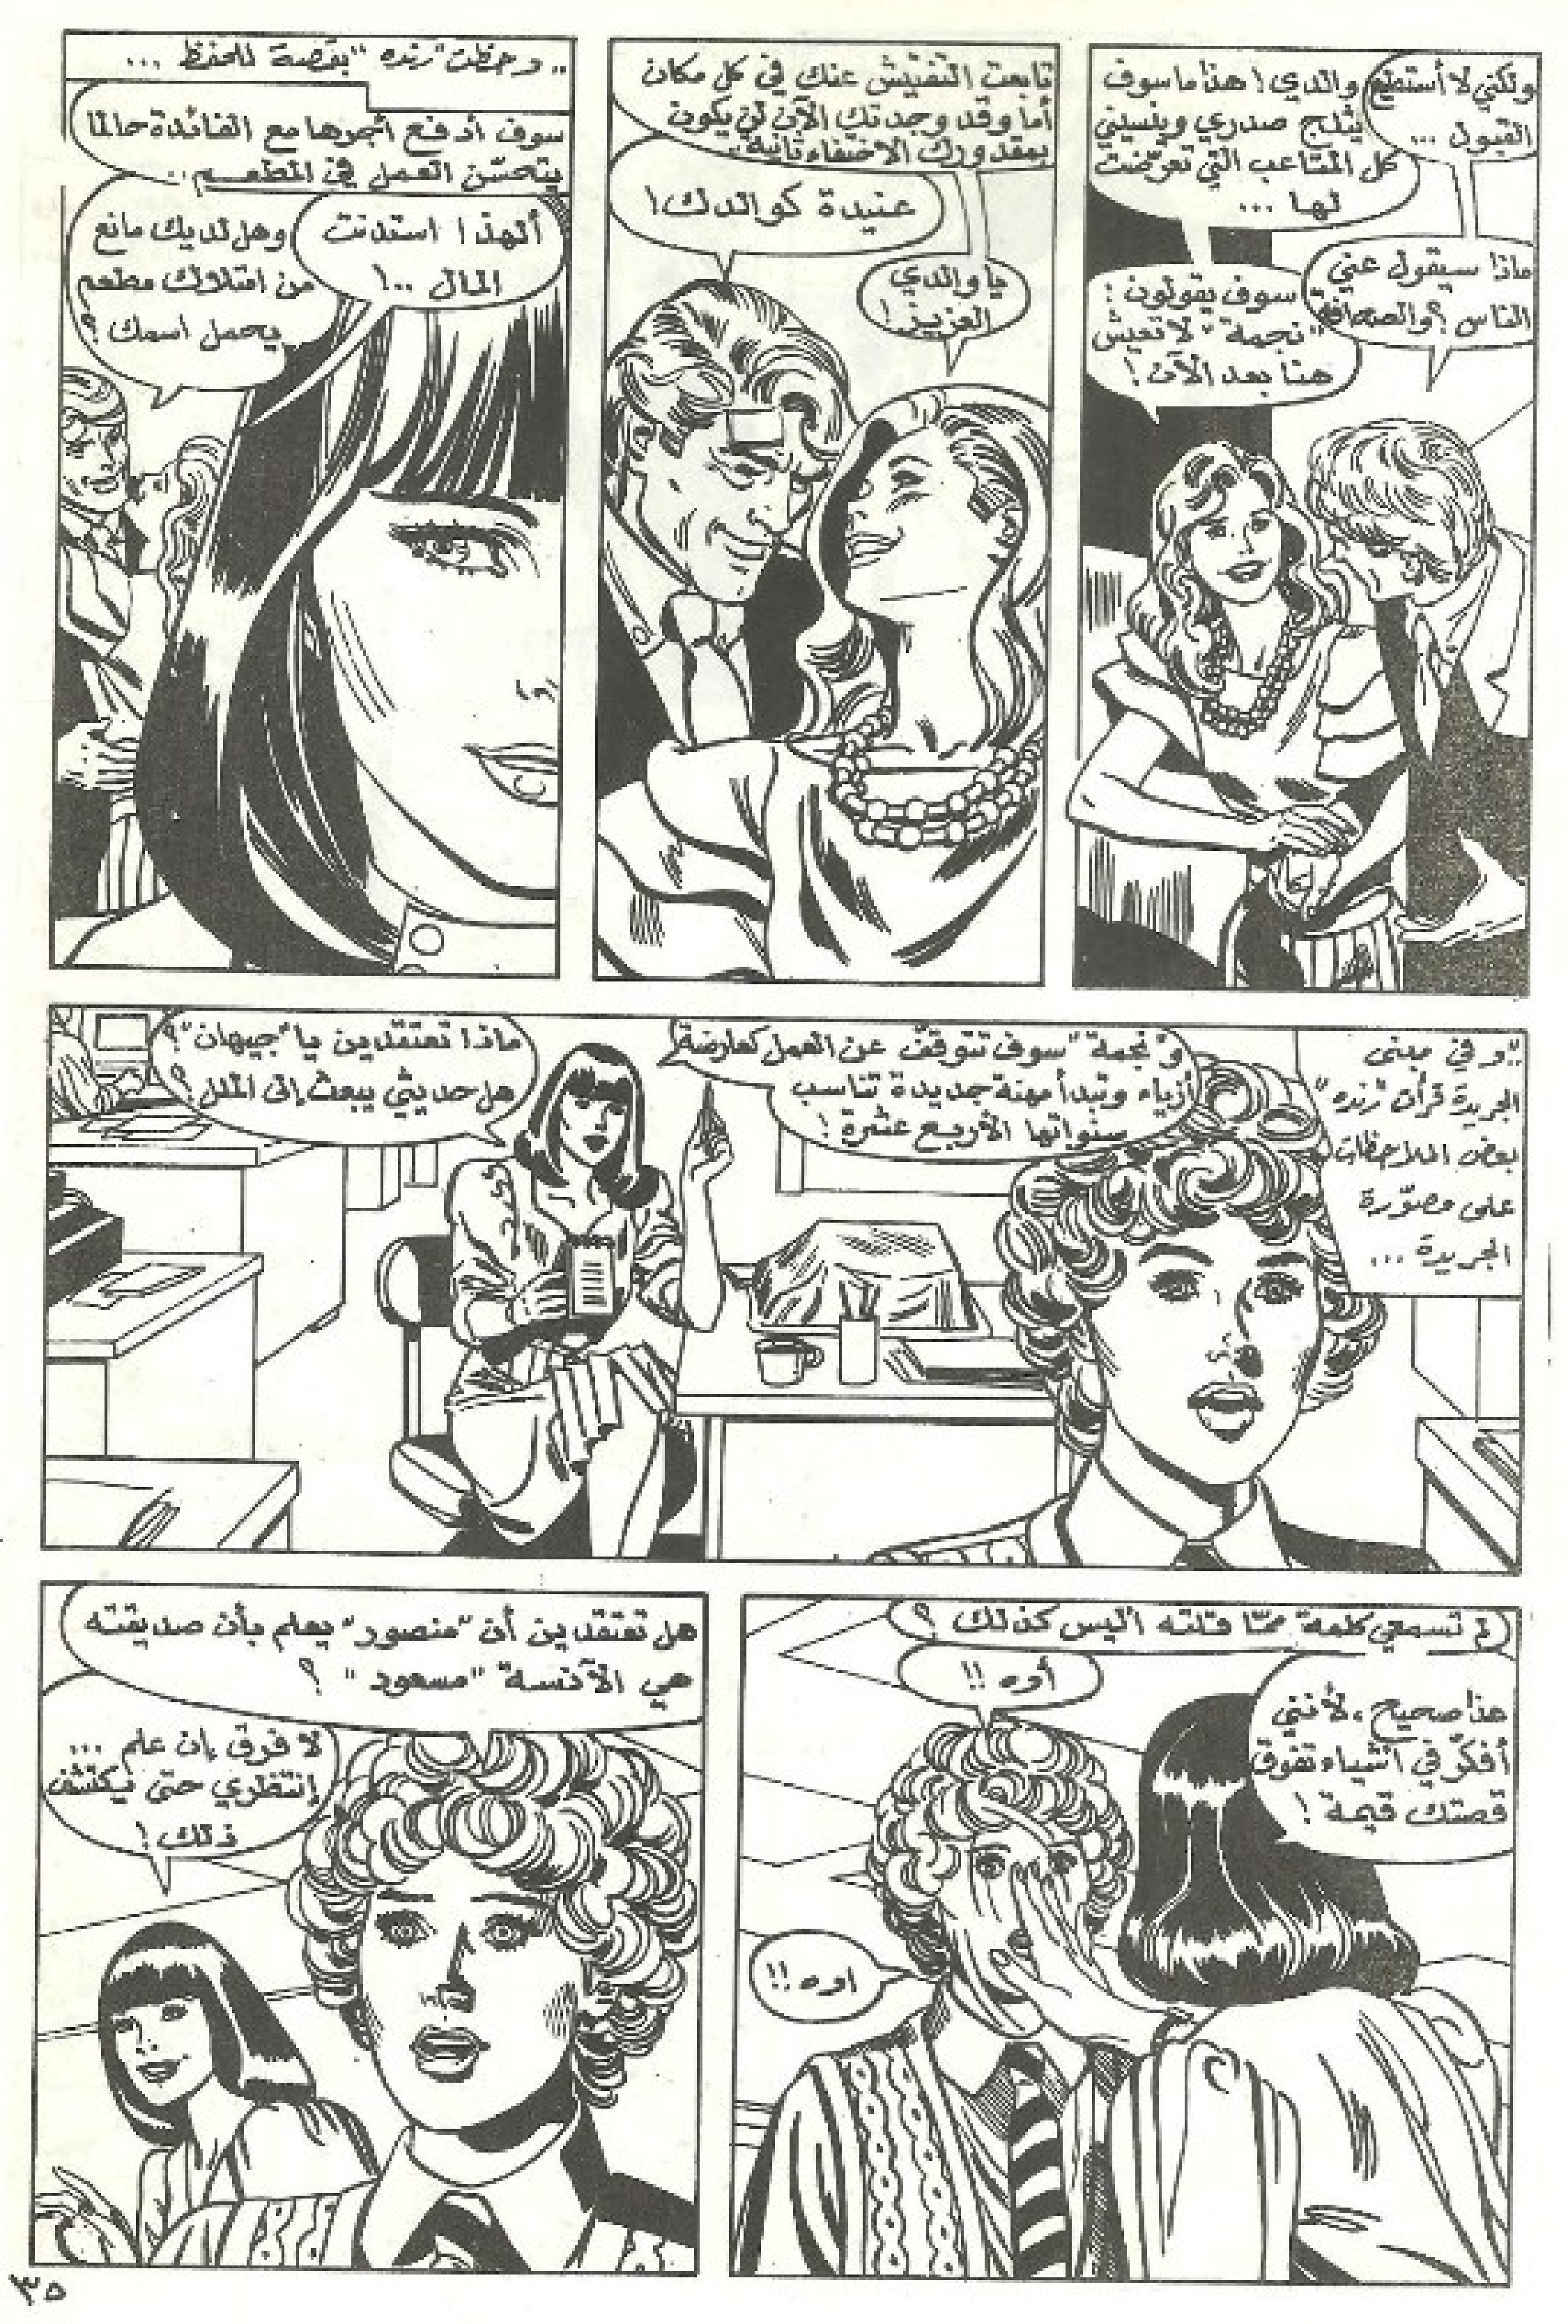 ولكني لا أستطيع
القبول ...
والدي! هذا ما سوف
يثلج صدري وينسيني
كل المتاعب التي تعرّضت
لها ...
ماذا سيقول عني
الناس؟ والصحافة؟
سوف يقولون:
"نجمة" لا تعيش
هنا بعد الآن!
تابعت التفتيش عنك في كل مكان
أما وقد وجدتك الآن لن يكون
بمقدورك الاختفاء ثانية..
عنيدة كوالدك!
يا والدي
العزيز!
.. وحظت "رنده" بقصة للحفظ ...
سوف أدفع أجرها مع الفائدة حالما
يتحسّن العمل في المطعم ..
ألهذا استدنت
المال ..!
وهل لديك مانع
من امتلاك مطعم
يحمل اسمك؟
.. وفي مبنى
الجريدة قرأت "رنده"
بعض الملاحظات
على مصوّرة
الجريدة ...
و"نجمة" سوف تتوقف عن العمل كعارضة
أزياء وتبدأ مهنة جديدة تناسب
سنواتها الأربع عشرة!
ماذا تعتقدين يا "جيهان"؟
هل حديثي يبعث إلى الملل؟
لم تسمعي كلمة ممّا قلته أليس كذلك؟
أوه!!
هذا صحيح، لأنني
أفكّر في أشياء تفوق
قصتك قيمة!
أوه!!
هل تعتقدين أن "منصور" يعلم بأن صديقته
هي الآنسة "مسعود"؟
لا فرق إن علم ...
إنتظري حتى يكتشف
ذلك!
٣٥